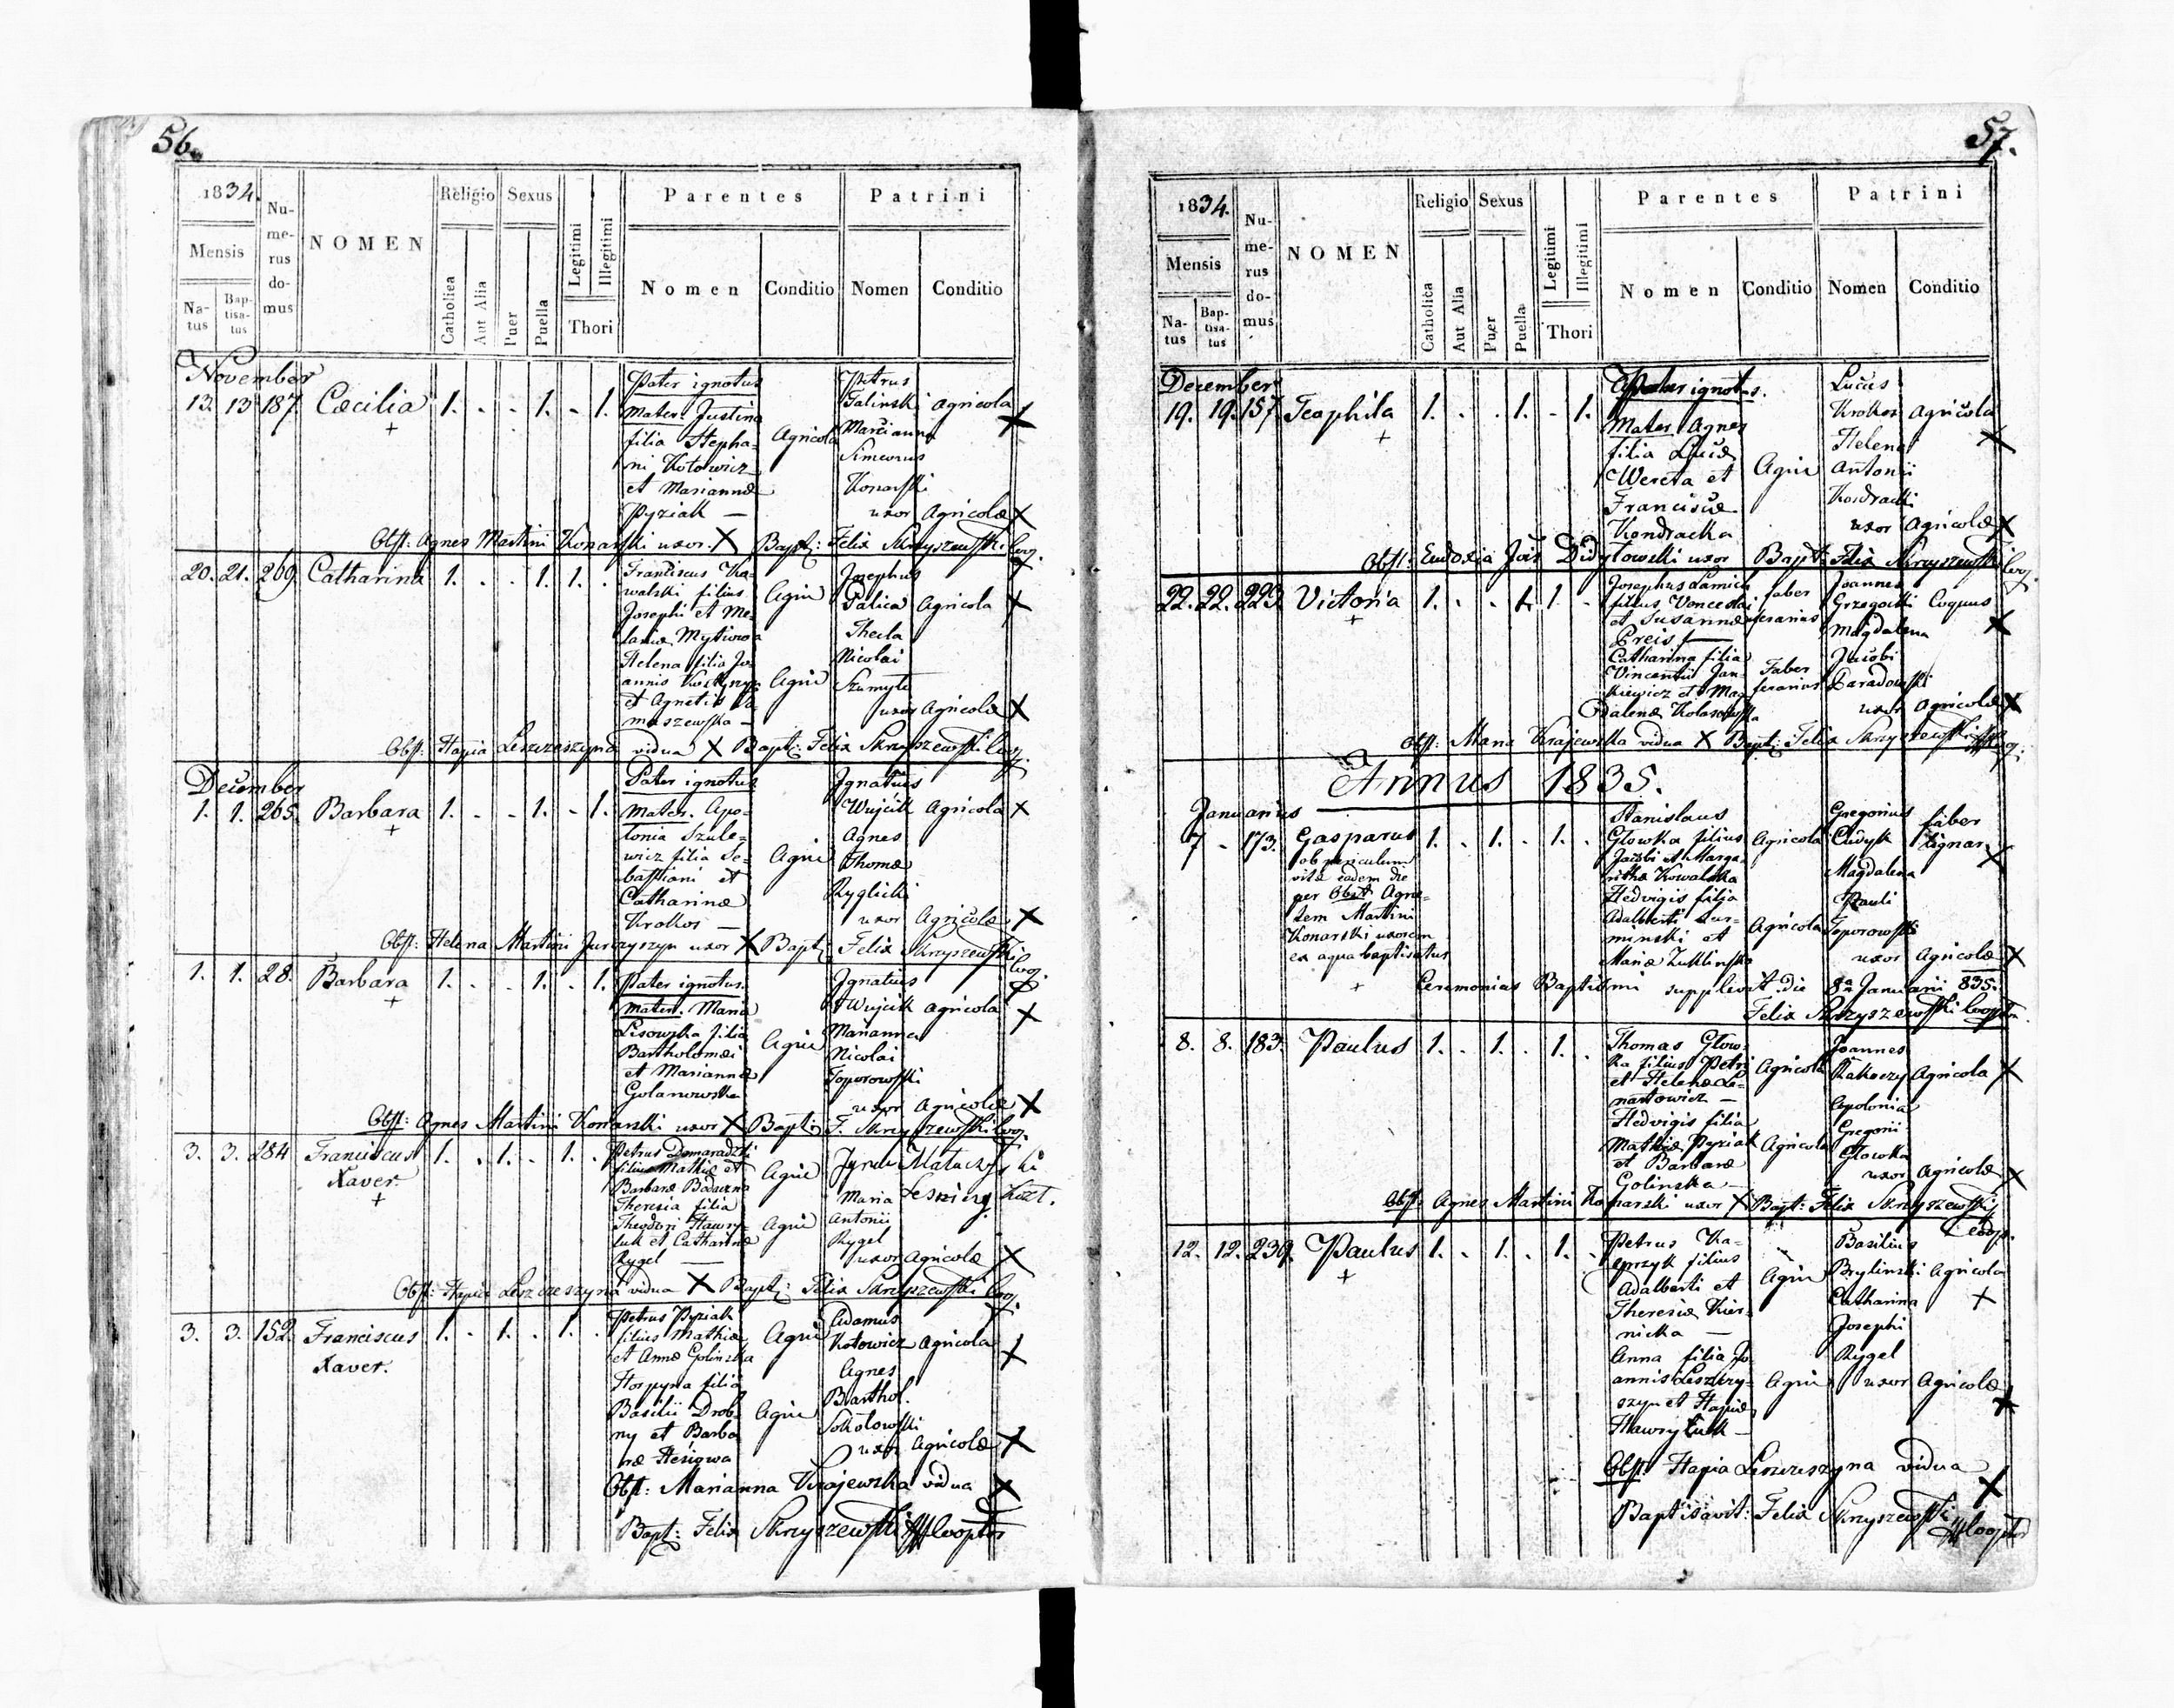 56.
1834.
Mensis
Na-
tus
Bap-
tisa-
tus
Nu-
me-
rus
do-
mus
NOMEN
Religio
Catholica
Aut Alia
Sexus
Puer
Puella
Legitimi
Illegitimi
Thori
Parentes
Nomen
Conditio
Patrini
Nomen
Conditio
November
13. 13 187. Cæcilia 1. . . 1. - 1.
+
Pater ignotus
Mater. Justina
filia Stepha-
ni Kotowicz
et Mariannæ
Pyziak —
Agricola
Petrus
Talinski Agricola X
Marianna
Simeonis
Konarski
uxor Agricolæ X
Obst: Agnes Martini Konarski uxor. X Bapt: Felix Skrzyszewski Coop.
20. 21. 269. Catharina 1. . . 1. 1. .
Franciscus Ka-
walski filius
Josephi et Me-
laniæ
Agric
Helena filia Jo-
annis
et Agnetis
maszewska —
Agric
Josephus
Palica Agricola X
Thecla
Nicolai
Szumyło
uxor Agricolæ X
Obst: Hapia Leszczeszyna vidua X Bapt: Felix Skrzyszewski Coop.
December
1. 1. 265. Barbara 1. . . 1. - 1.
+
Pater ignotus
Mater. Apo-
lonia Szule-
wicz filia Se-
bastiani et
Catharinæ
Krokos —
Agric
Ignatius
Wujcik Agricola X
Agnes
Thomæ
Ryglicki
uxor Agricolæ X
Obst: Helena Martini Jurczyszyn uxor X Bapt: Felix Skrzyszewski Coop.
1. 1. 28. Barbara 1. . . 1. . 1.
+
Pater ignotus.
Mater. Maria
Lisowska filia
Bartholomæi
et Mariannæ
Golanowska
Agric
Ignatius
Wujcik Agricola X
Marianna
Nicolai
Toporowski
uxor Agricolæ X
Obst: Agnes Martini Konarski uxor X Bapt: F. Skrzyszewski Coop.
3. 3. 284 Franciscus 1. . 1. . 1. .
Xaver.
+
Petrus Domaradzki
filius Mathiæ et
Barbaræ
Agric
Theresia filia
Theodori Hawry-
luk et Catharinæ
Rygel —
Agric
Maria
Antonii
Rygel
uxor Agricolæ X
Obst: Hapia Leszczeszyna vidua X Bapt: Felix Skrzyszewski Coop.
3. 3. 152. Franciscus 1. . 1. . 1. .
Xaver.
Petrus Pyziak
filius Mathiæ
et Annæ Golinska
Agric
Horpyna filia
Basilii Drob-
ny et Barba-
ræ
Agric
Adamus
Kotowicz Agricola X
Agnes
Barthol.
Sokołowski
uxor Agricolæ X
Obst: Marianna Krajewska vidua X
Bapt: Felix Skrzyszewski Cooptor
57.
1834.
Mensis
Na-
tus
Bap-
tisa-
tus
Nu-
me-
rus
do-
mus
NOMEN
Religio
Catholica
Aut Alia
Sexus
Puer
Puella
Legitimi
Illegitimi
Thori
Parentes
Nomen
Conditio
Patrini
Nomen
Conditio
December
19. 19. 157. Teophila 1. . . 1. - 1.
+
Pater ignotus.
Mater Agnes
filia Lucæ
Wereta et
Franciscæ
Kondracka
Agric
Lucas
Krokos Agricola X
Helena
Antonii
Kondracki
uxor Agricolæ X
Obst: Eudoxia Jois Didyłowski uxor Bapt: Felix Skrzyszewski Coop.
22. 22. 223. Victoria 1. . . 1. 1. -
+
Josephus
filius Venceslai
et Susannæ
Preis —
faber
ferarius
Catharina filia
Vincentii Jan-
kiewicz et Mag-
dalenæ
Faber
ferarius
Joannes
Grzegocki Coquus X
Magdalena
Jacobi
Paradowski
uxor Agricolæ X
Obst: Maria Krajewska vidua X Bapt: Felix Skrzyszewski Coop.
Annus 1835.
Januarius
7 - 173. Gasparus 1. . 1. . 1. .
ob periculum
vitæ eadem die
per Obst Agne-
tem Martini
Konarski uxorem
ex aqua baptisatus
+
Stanislaus
Głowka filius
Jacobi et Marga-
rithæ Kowalska
Agricola
Hedvigis filia
Adalberti
minski et
Mariæ Zuklinska
Agricola
Gregorius
Cudyk faber lignar. X
Magdalena
Pauli
Toporowski
uxor Agricolæ X
Ceremonias Baptismi supplevit die 8a Januarii 835.
Felix Skrzyszewski Cooptor.
8. 8. 183. Paulus 1. . 1. . 1. .
Thomas Głow-
ka filius Petri
et Helenæ Le-
nartowicz —
Agricola
Hedvigis filia
Mathiæ Pyziak
et Barbaræ
Golinska —
Agricola
Joannes
Rakoczy Agricola X
Apolonia
Gregorii
Głowka
uxor Agricolæ X
Obst: Agnes Martini Konarski uxor X Bapt: Felix Skrzyszewski
Coop.
12. 12. 239. Paulus 1. . 1. . 1. .
+
Petrus Ka-
sprzyk filius
Adalberti et
Theresiæ Kier-
nicka —
Agric
Anna filia Jo-
annis Leszczy-
szyn et Hapiæ
Hawryluk —
Agric
Basilius
Brylinski Agricola X
Catharina
Josephi
Rygel
uxor Agricolæ X
Obst. Hapia Leszczeszyna vidua X
Baptisavit: Felix Skrzyszewski Cooptor